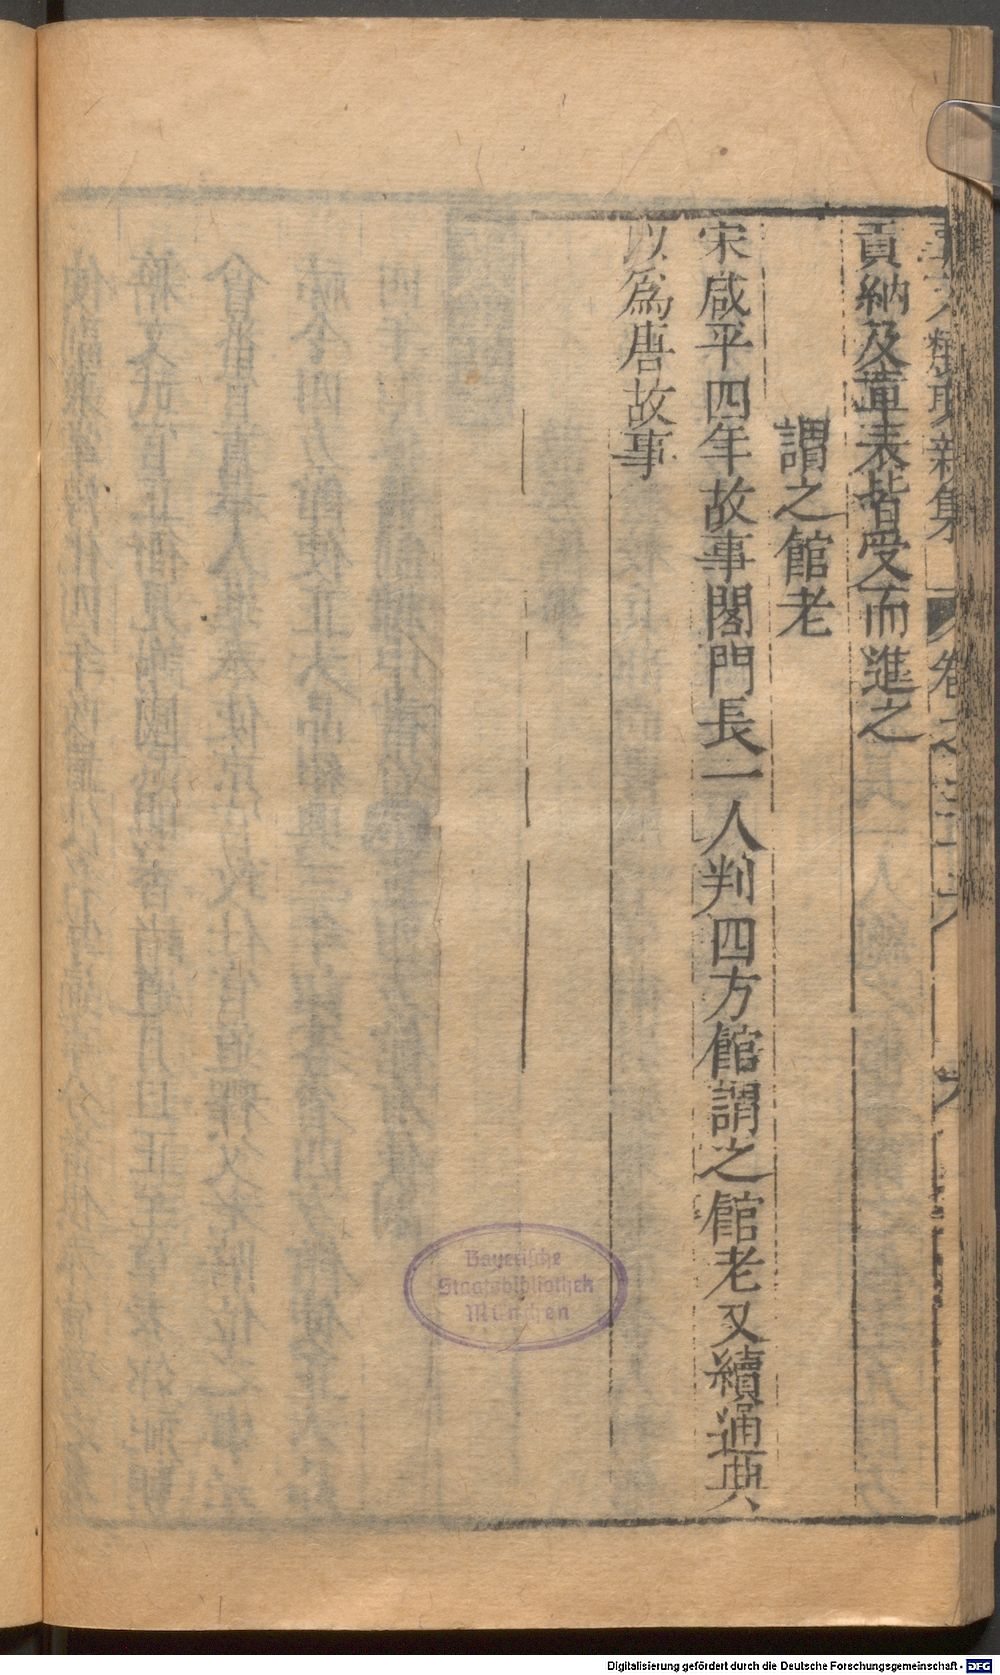 事文類聚新集 卷之三十六
貢納及章表皆受而進之
謂之館老
宋咸平四年故事閣門長一人判四方館謂之館老又續通典
以為唐故事
Bayerische
Staatsbibliothek
München
Digitalisierung gefördert durch die Deutsche Forschungsgemeinschaft - DFG